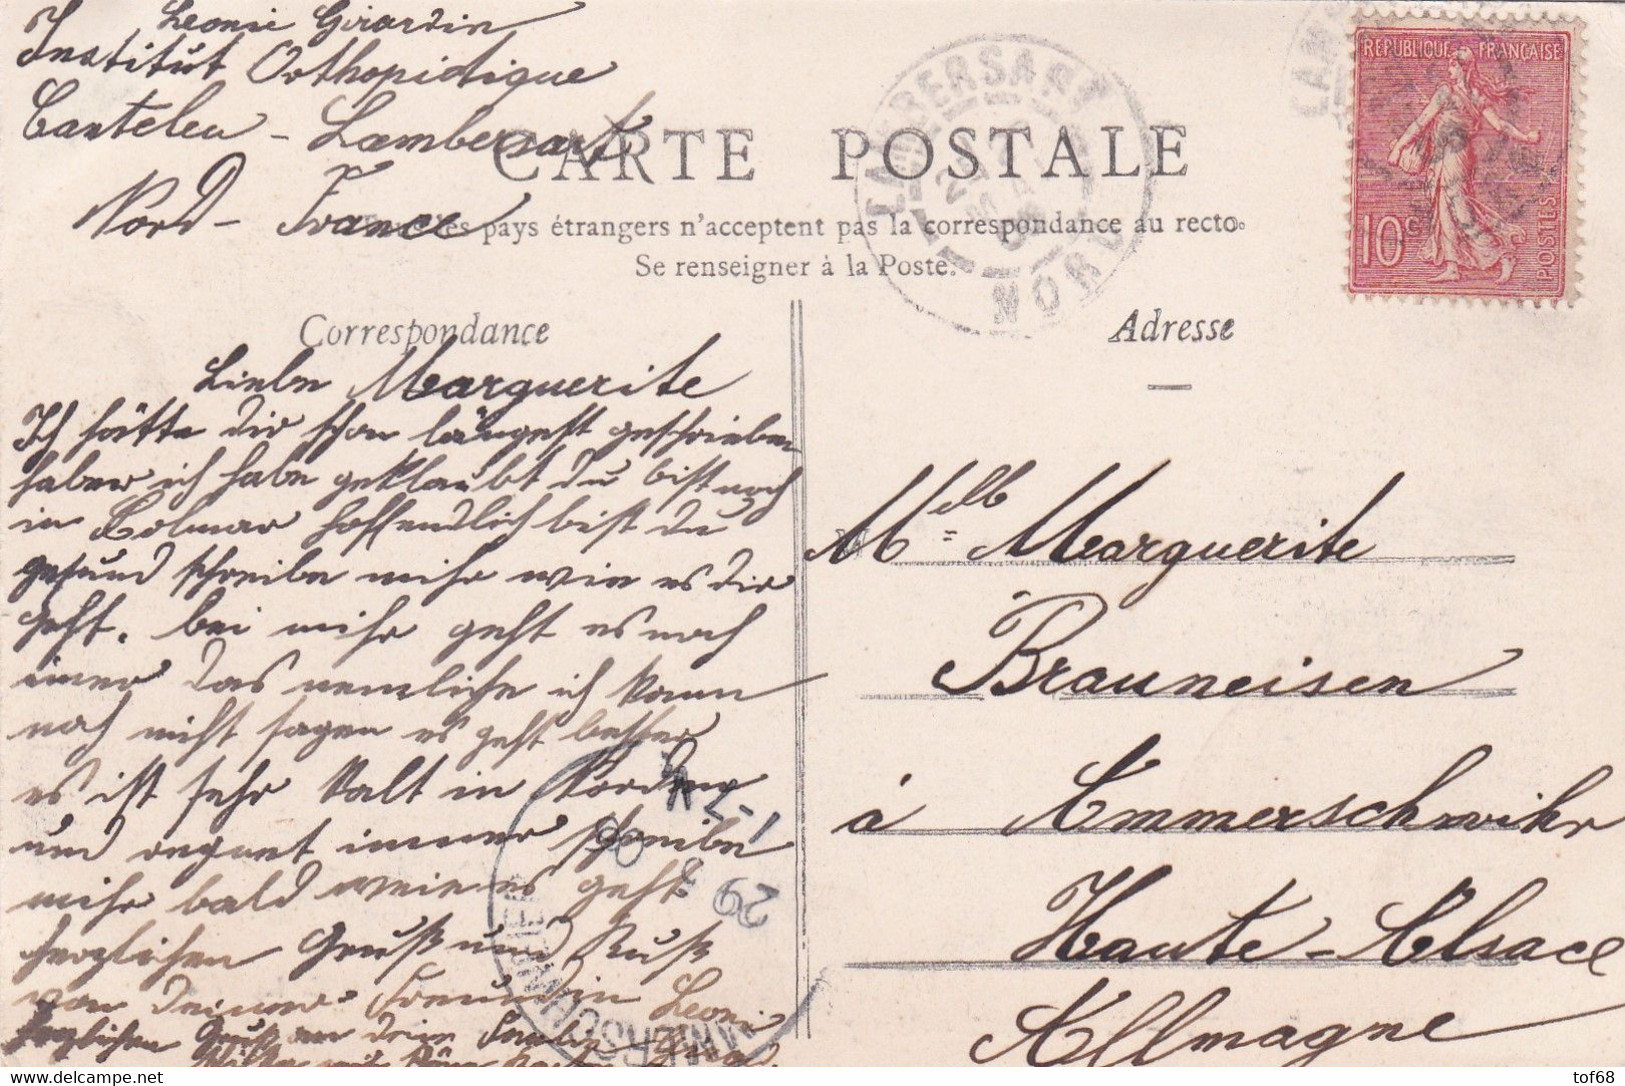 Leonie Girardin
Institut Orthopidique
Canteleu - Lambersart
Nord - France
CARTE POSTALE
pays étrangers n'acceptent pas la correspondance au recto.
Se renseigner à la Poste.
LAMBERSART
NORD
RÉPUBLIQUE FRANÇAISE
10c
POSTES
Correspondance
Adresse
Liebe Marguerite
Ich hätte dir schon längest geschrieben
haber ich habe geklaubt du bist noch
in Colmar hoffendlich bist du
gesund schreibe mihr wie es dir
geht. bei mihr geht es noch
imer das nemliche ich kann
noch nicht sagen es geht besser
es ist sehr kalt in Norden
und regnet immer schreibe
mihr bald wie es geht
herzlichen Gruß und Kuß
von deiner Freundin Leoni
herzlichen Gruß an dein Familie
Mlle Marguerite
Brauneisen
à Ammerschwihr
Haute-Alsace
Allmagne
AMMERSCHWEIER
29
tof68
delcampe.net